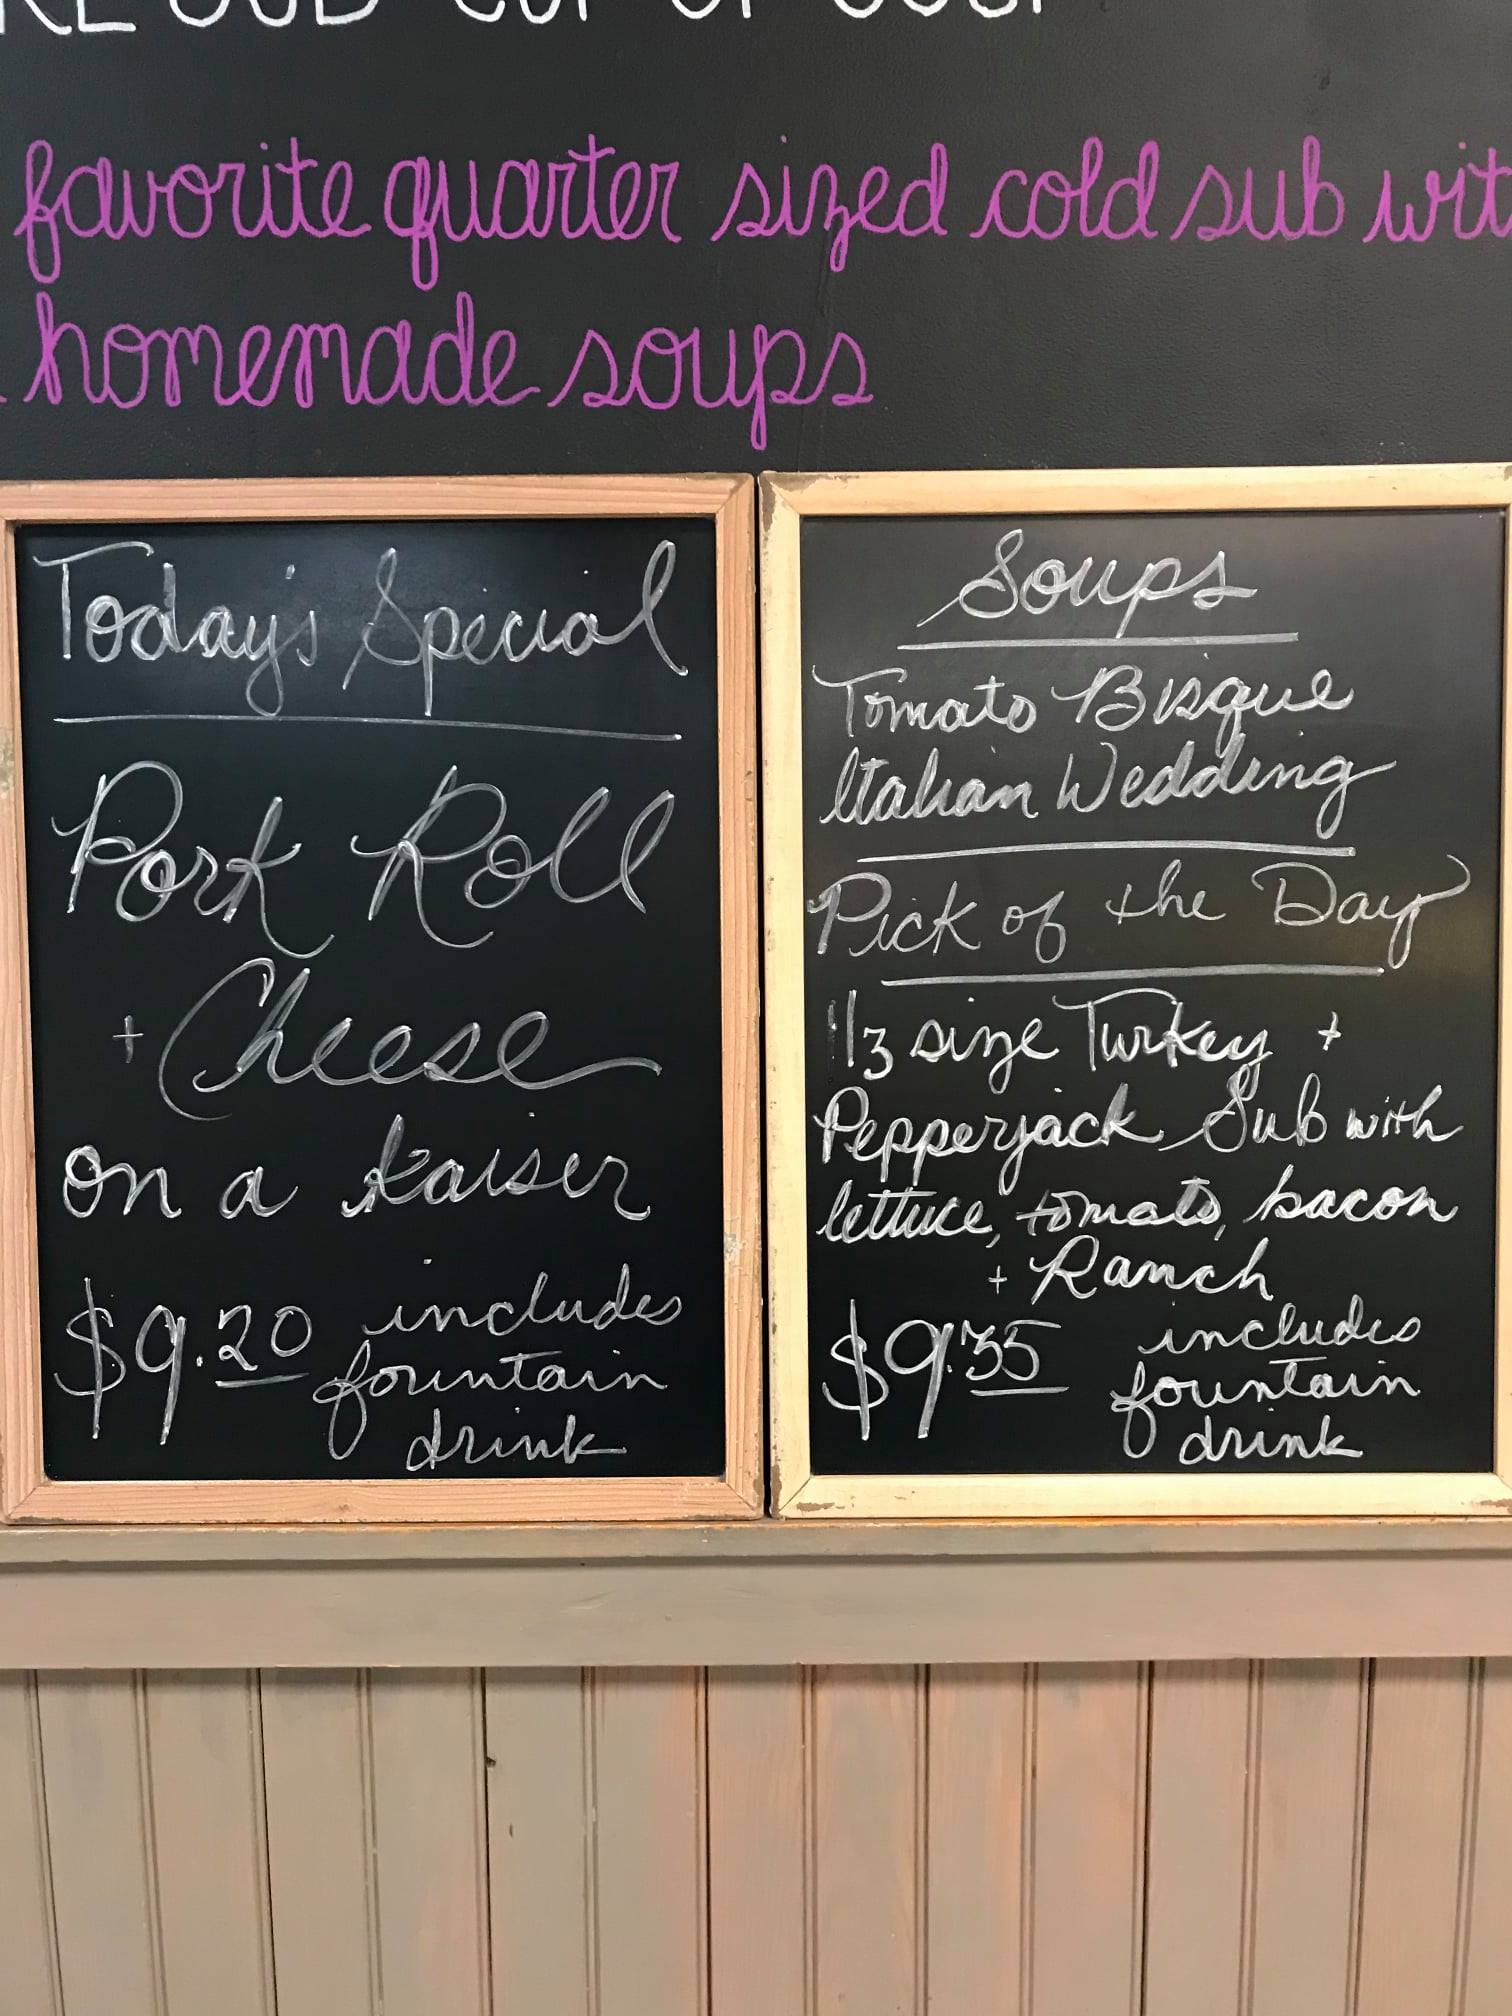 SUB CUP OF SOUP
favorite quarter sized cold sub wit
homemade soups
Today's Special
Pork Roll
+ Cheese
on a kaiser
$9.20 includes
fountain
drink
Soups
Tomato Bisque
Italian Wedding
Pick of the Day
1/3 size Turkey +
Pepperjack Sub with
lettuce, tomato, bacon
+ Ranch
$9.35 includes
fountain
drink